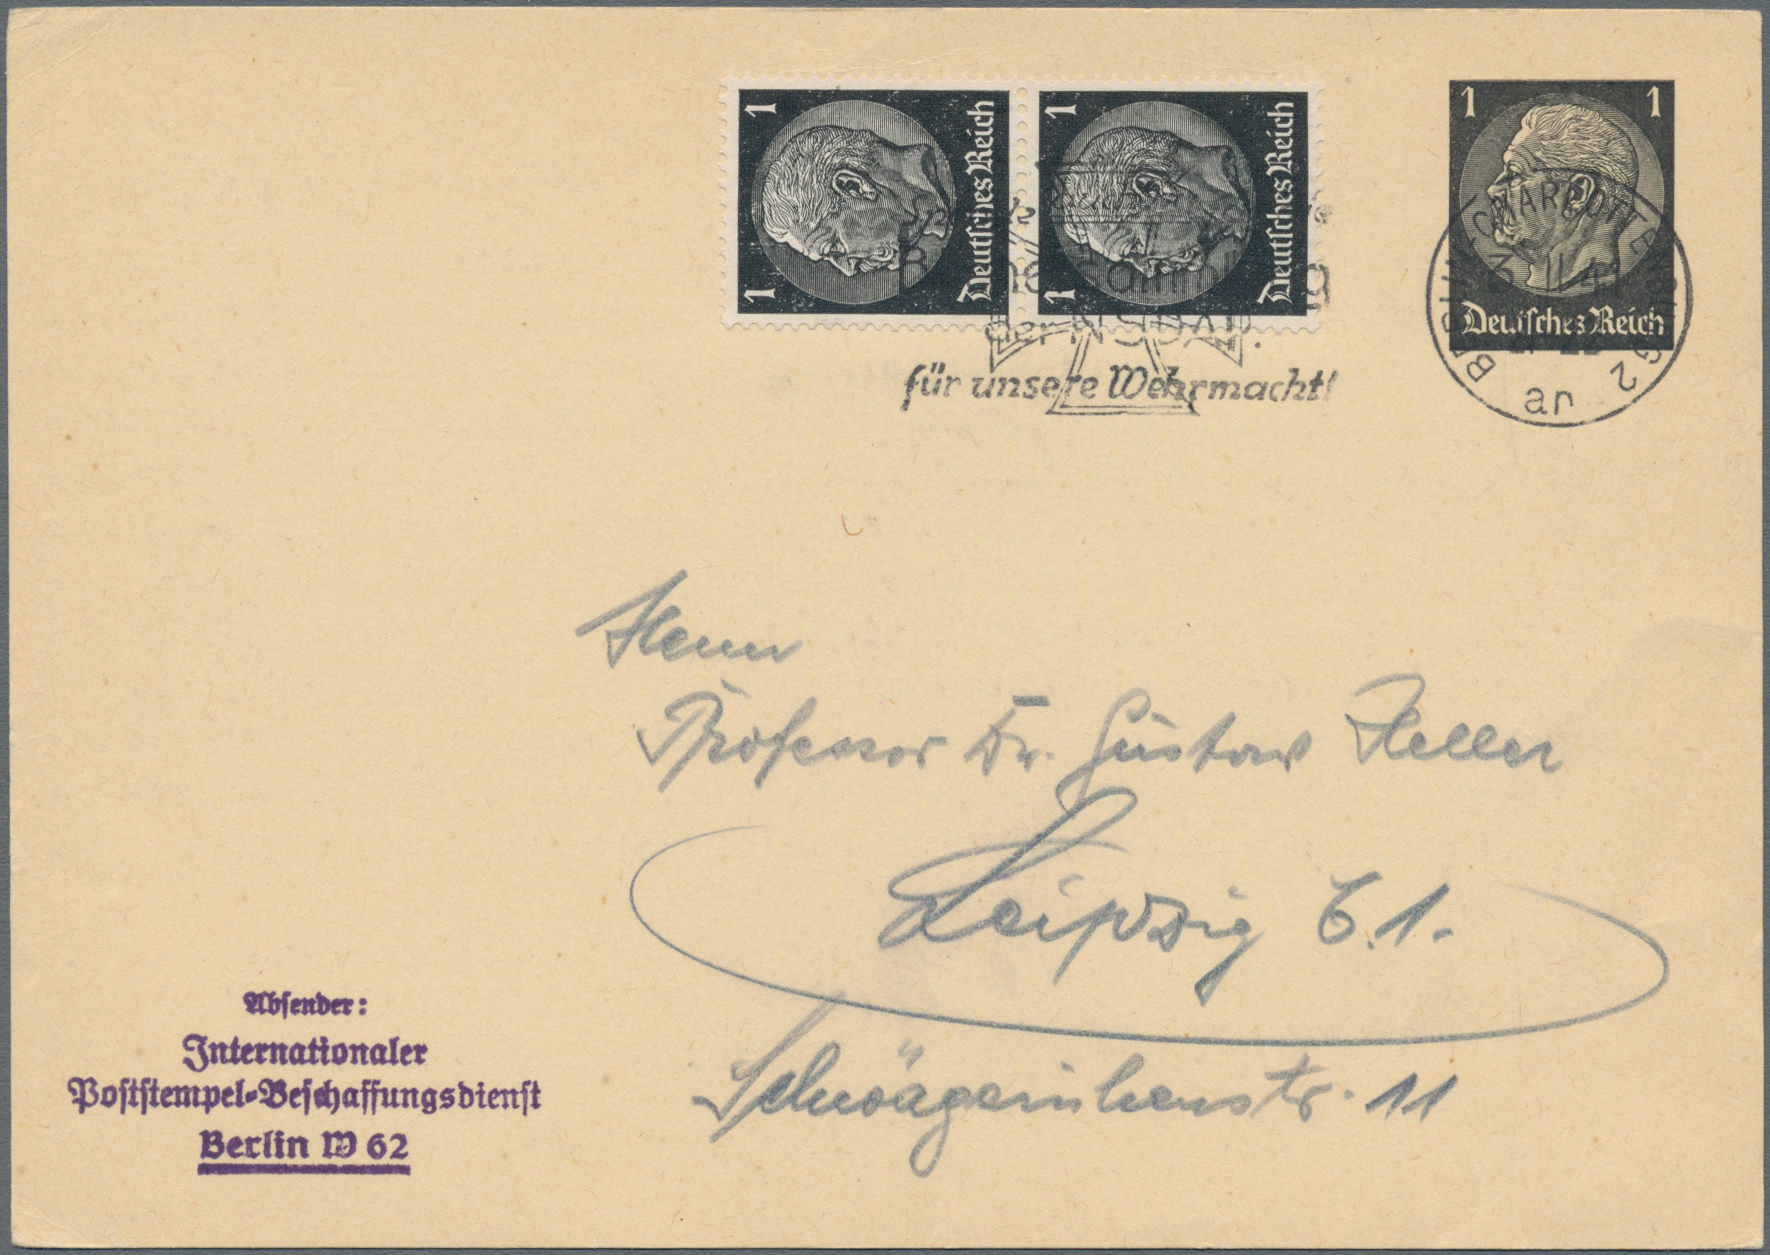 1 1
Deutsches Reich
1 1
Deutsches Reich
1 1
Deutsches Reich
BERLIN-CHARLOTTENBURG 2
II.41
an
der NSDAP.
für unsere Wehrmacht!
Herrn
Professor Dr. Gustav Heller
Leipzig C.1.
Schwägrichenstr. 11
Absender:
Internationaler
Poststempel-Beschaffungsdienst
Berlin W 62